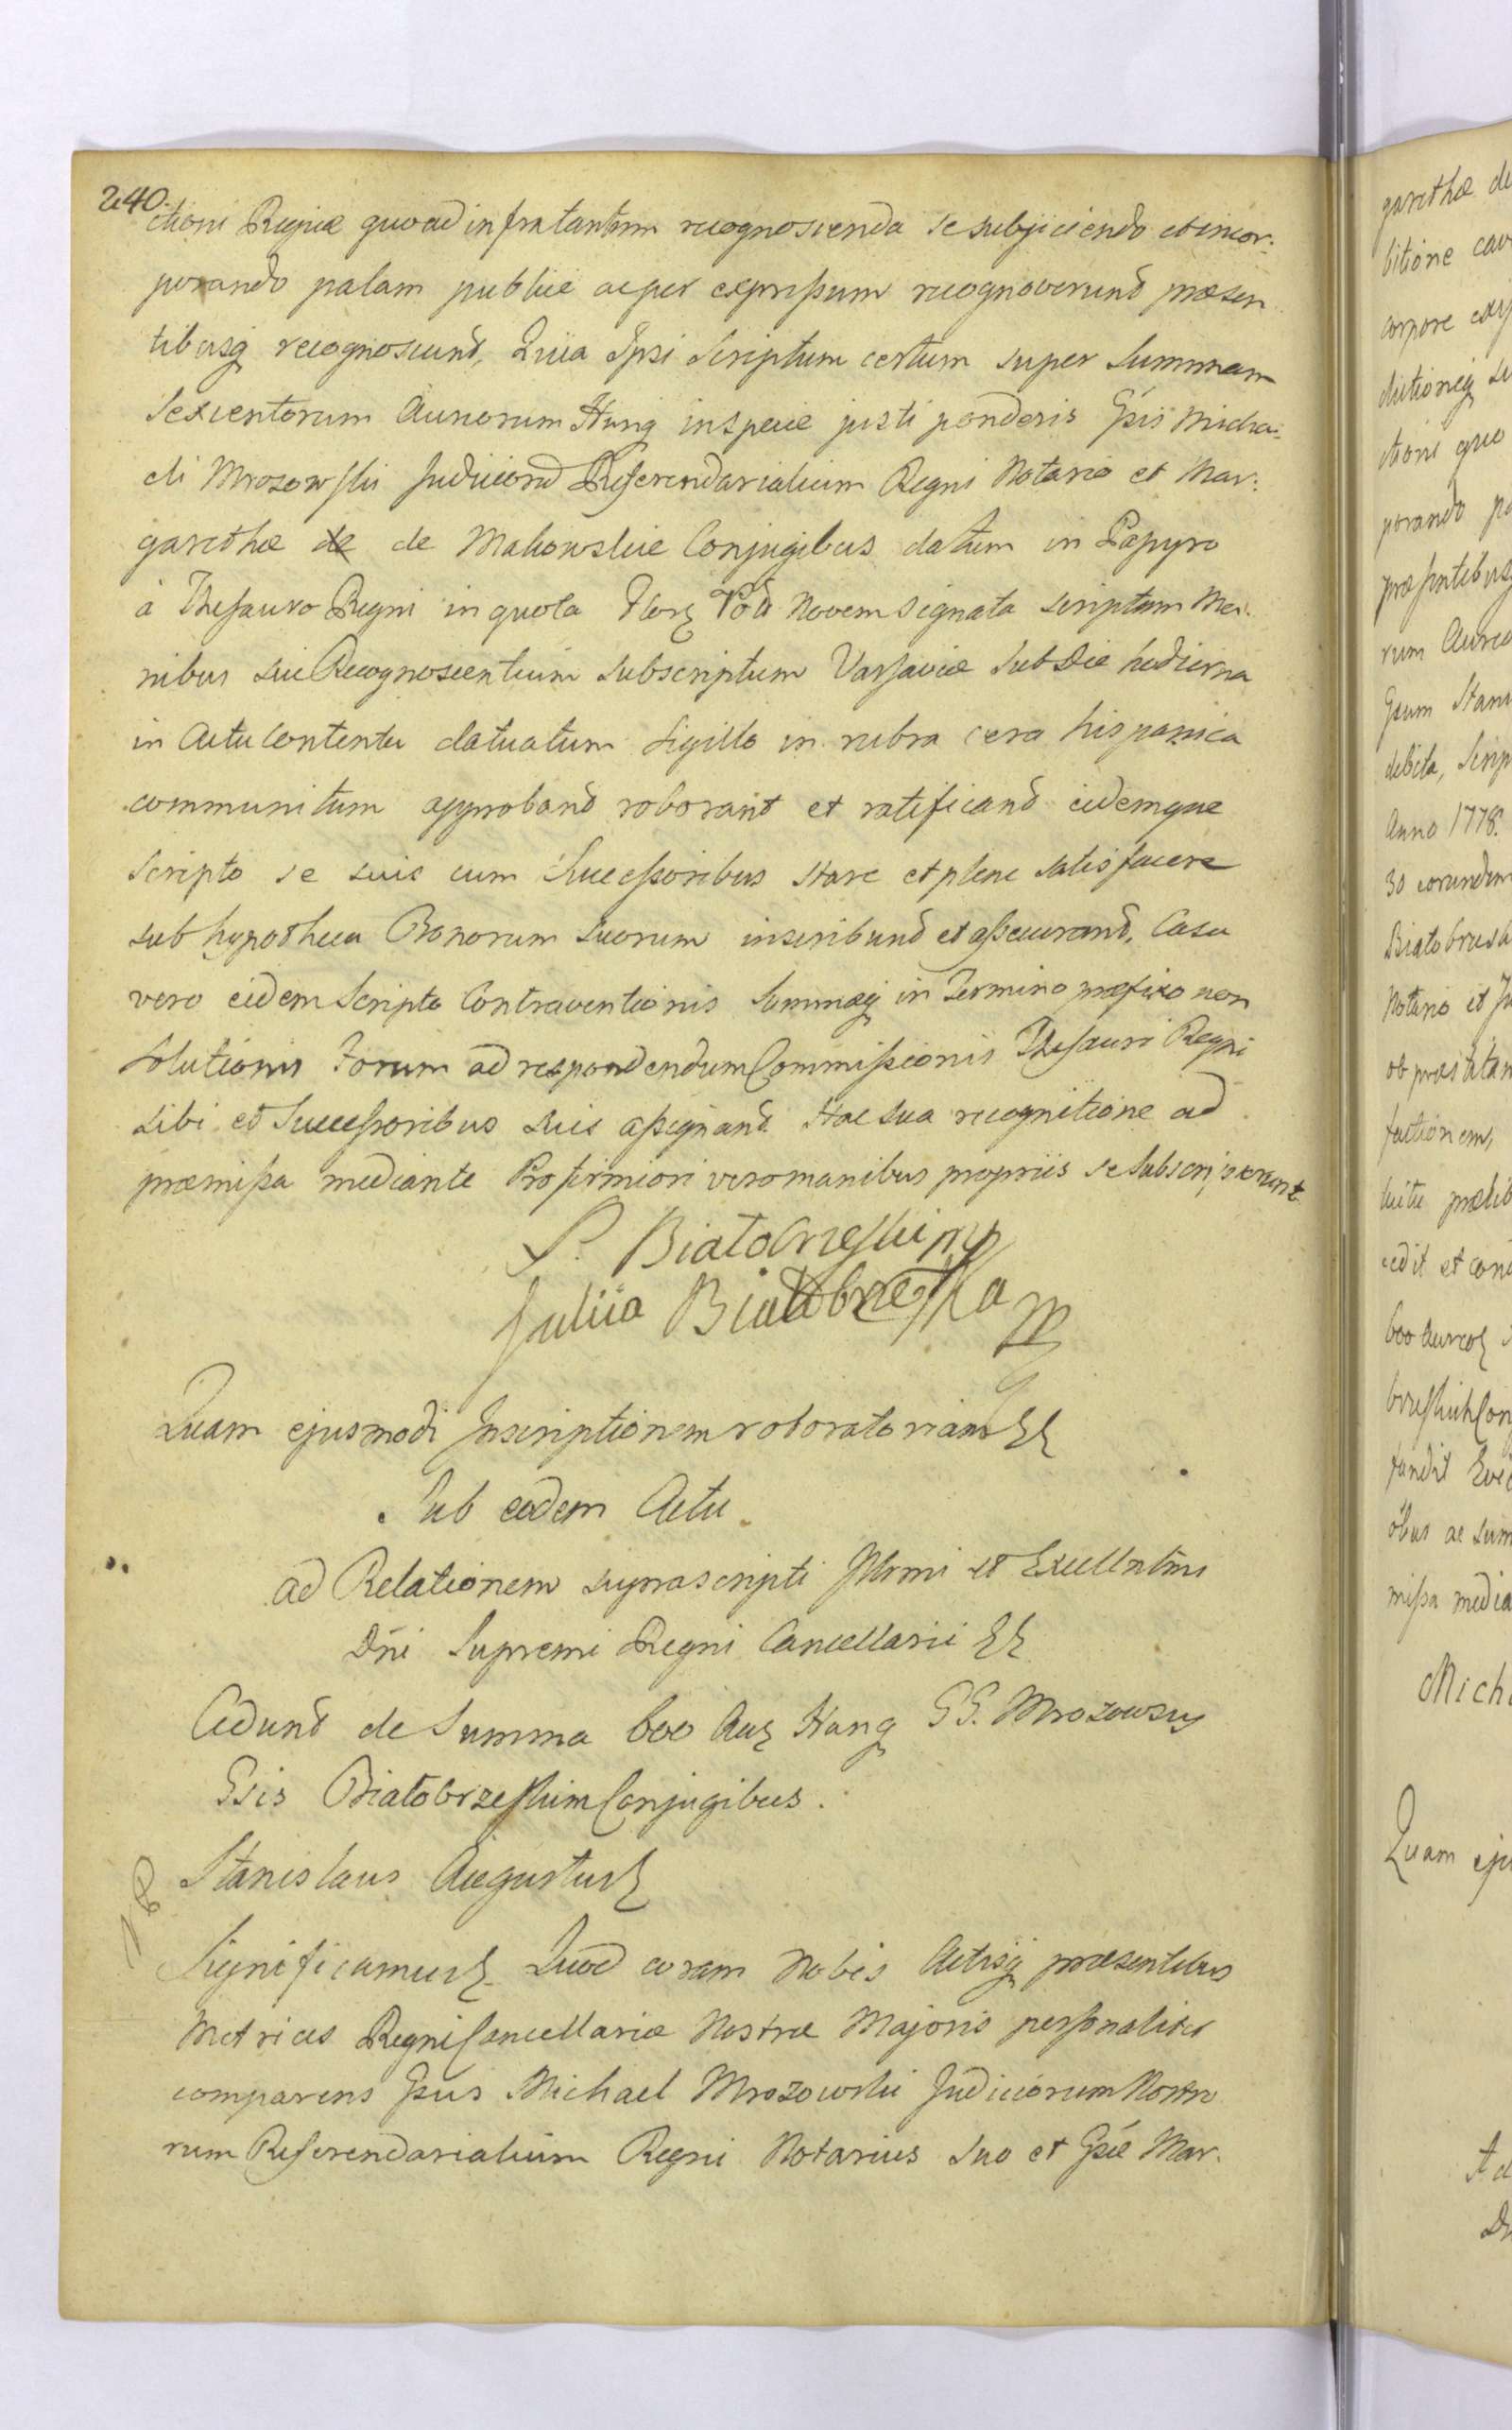 240.
ctioni Regiæ quoad infra tantum recognoscenda se subjiciendo et incor:
porando palam publice ac per expressum recognoverunt præsen
tibusq recognoscunt, Quia Ipsi Scriptum certum super Summam
Sexcentorum Aureorum Hung in specie justi ponderis Gsis Micha:
eli Mrozowski Judiciorũ Referendarialium Regni Notario et Mar:
garethæ de Makowskie Conjugibus datum in Papyro
à Thesauro Regni in quota Flor Pol Novem signata scriptum Ma:
nibus sui Recognoscentium subscriptum Varsaviæ Sub Die hodierna
in Actu Contenta datuatum Sigillo in rubra cera hispanica
communitum approband roborant et ratificand eidemque
Scripto se suis cum Successoribus stare et plene satisfacere
sub hypotheca Bonorum suorum inscribund et assecurand, Casu
vero eidem Scripto Contraventionis Summæq in Termino præfixo non
Solutionis Forum ad respondendum Commissionis Thesauri Regni
Sibi et Successoribus suis assignand Hac sua recognitione ad
præmissa mediante Pro firmiori vero manibus propriis se subscripserunt
P. Białobrzeski mp
Juliia Białobrzeska mp
Quam ejusmodi Inscriptionem roboratoriam &&
Sub eodem Actu
ad Relationem suprascripti Illrmi et Excellntmi
Dni Supremi Regni Cancellarii &&
Cedunt de Summa 600 Aur Hung GG. Mrozowscy
Gsis Białobrzeskim Conjugibus.
Stanislaus Augustus &
Significamus & Quod coram Nobis Actisq præsentibus
Metrices Regni Cancellariæ Nostræ Majoris personaliter
comparens Gsus Michael Mrozowski Judiciorum Nostro
rum Referendarialium Regni Notarius suo et Gsæ Mar.
garethæ de
bitione cav
corpore
dictioneq su
ctioni quo
porando pa
præsentibusq
rum Aureo
Gsum Stani
debita, Scrip
Anno 1778.
30 eorundem
Białobrzesk
Notario et Ju
ob præstitan
factionem,
cedit et cond
600 Aureor
brzeskich Con
missa media
Mich
Quam eju
Ad